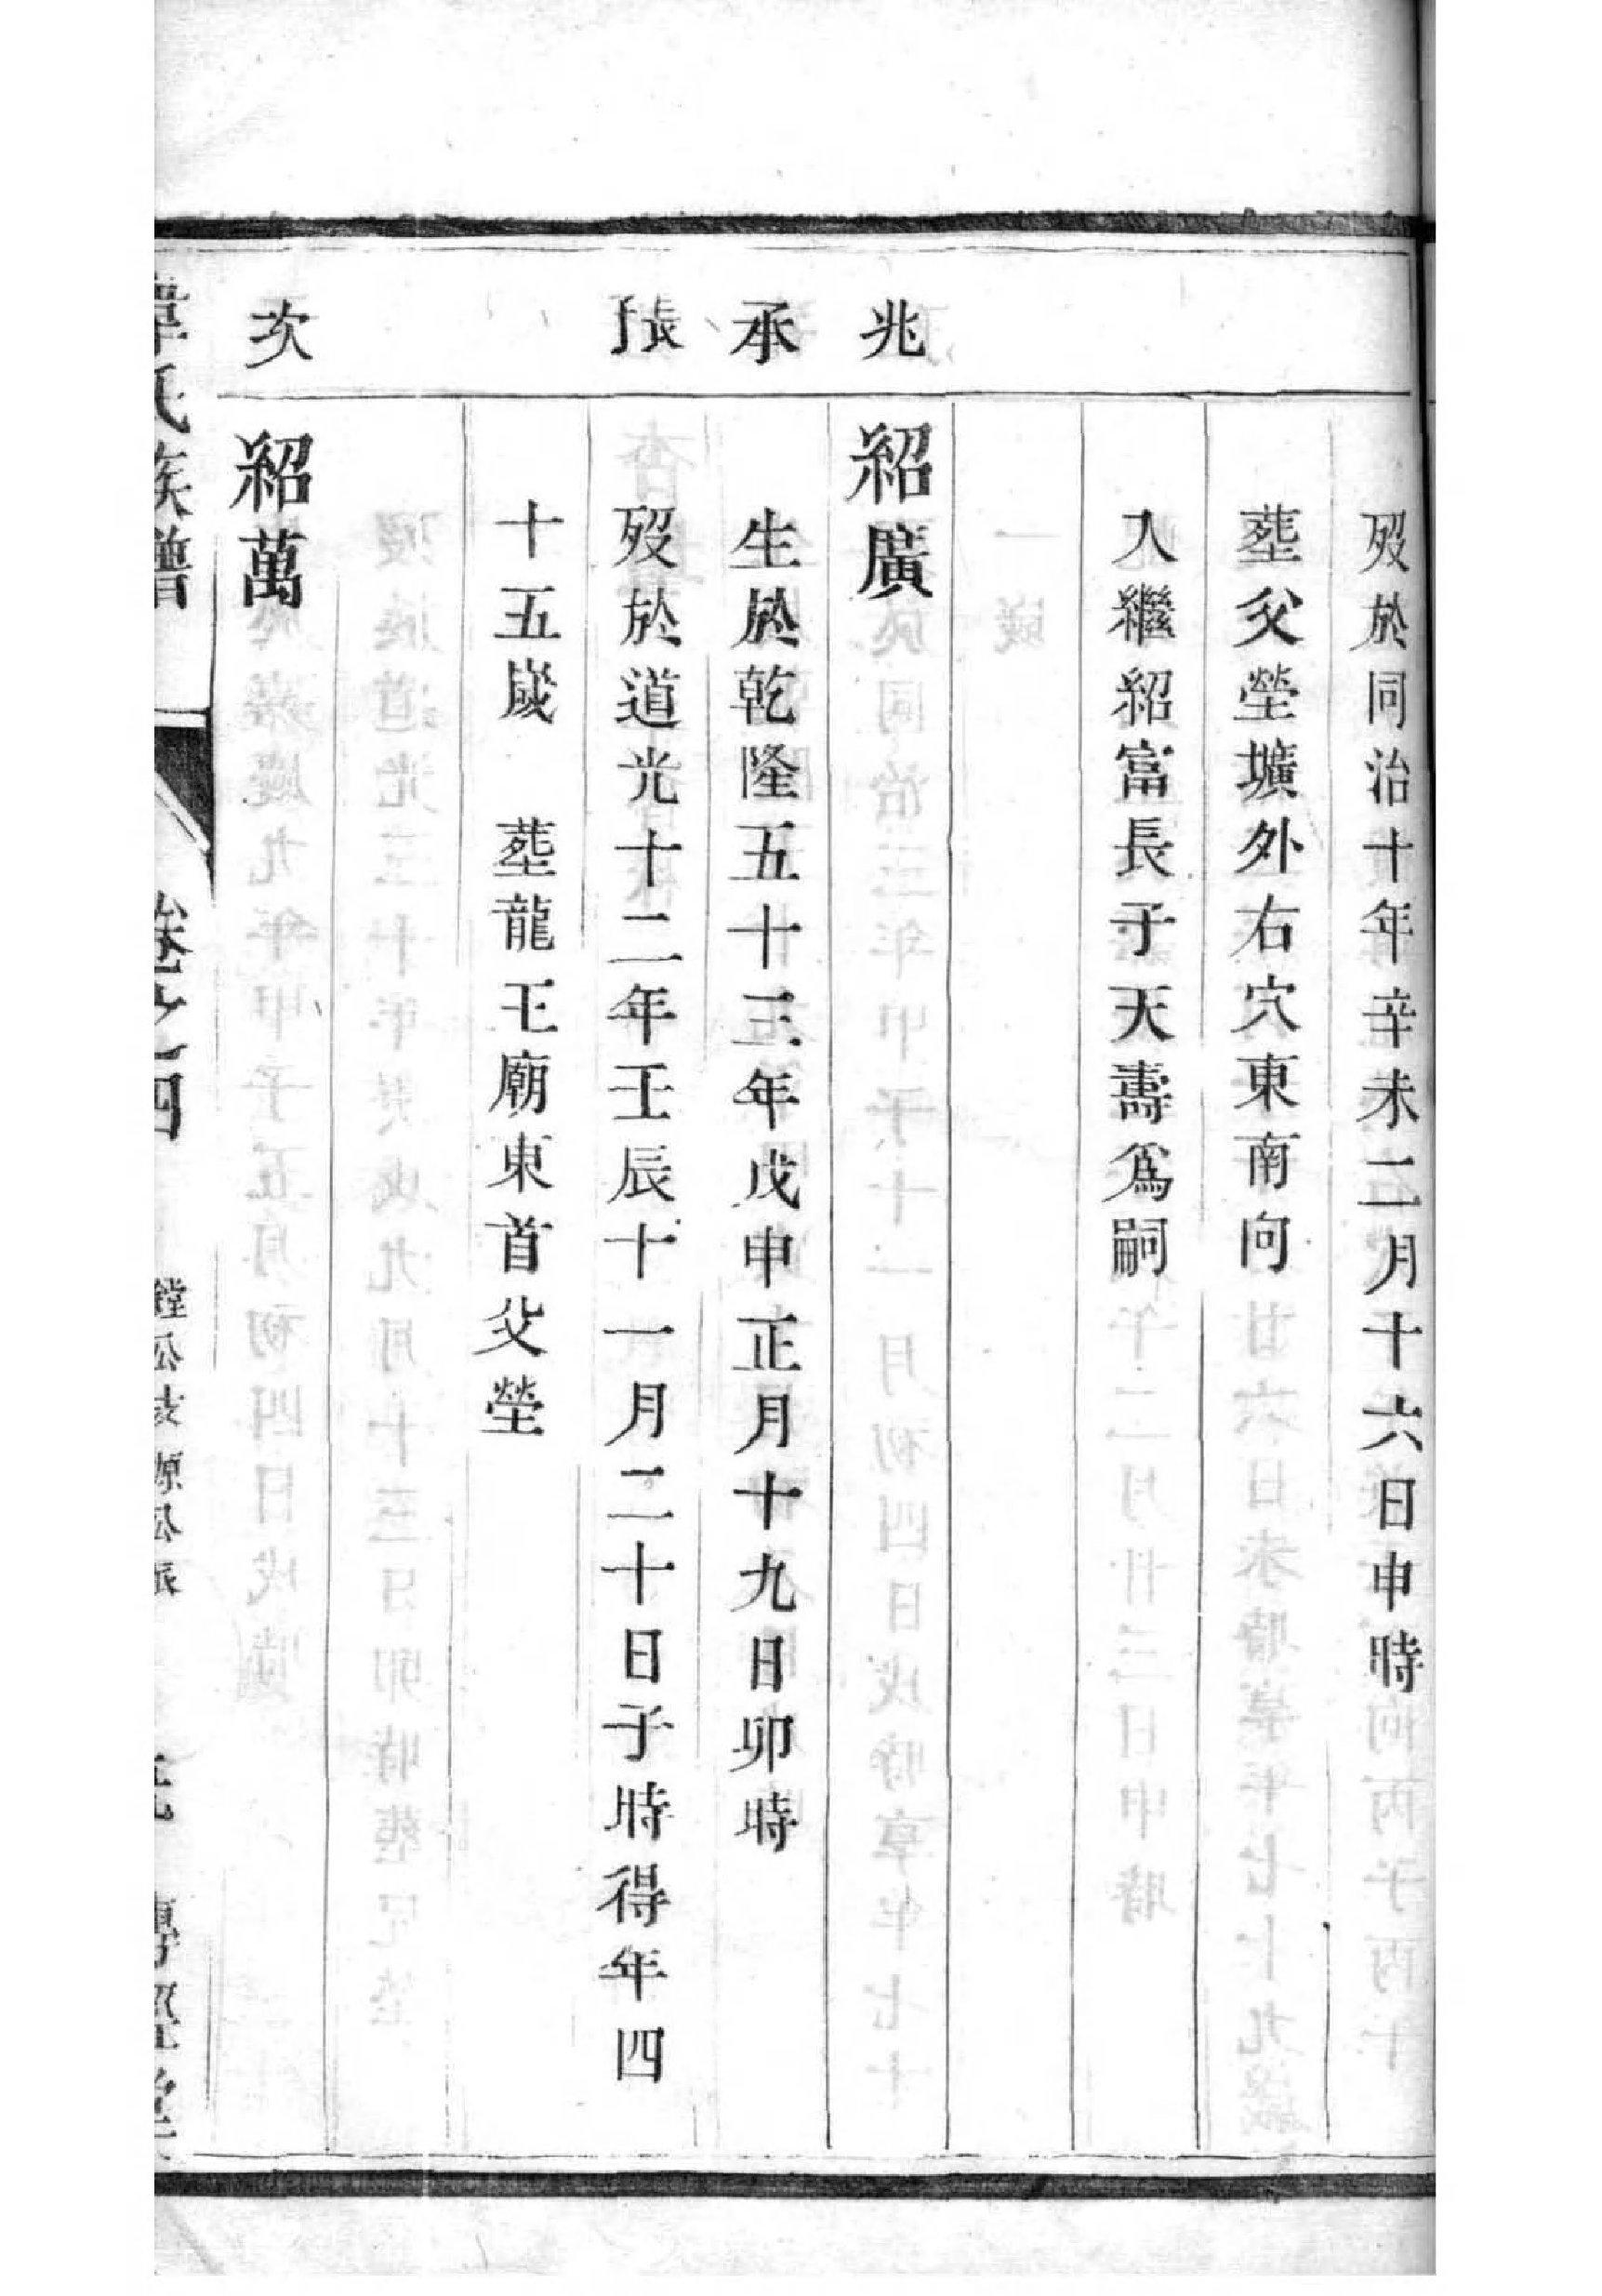 歿於同治十年辛未二月十六日申時
葬父塋壙外右穴東南向
入繼紹富長子天壽爲嗣
兆
紹廣
承
生於乾隆五十三年戊申正月十九日卯時
長子
歿於道光十二年壬辰十一月二十日子時得年四
十五歲　葬龍王廟東首父塋
次
紹萬
韋氏族譜
卷之四
鏜公支源公派
傳經堂